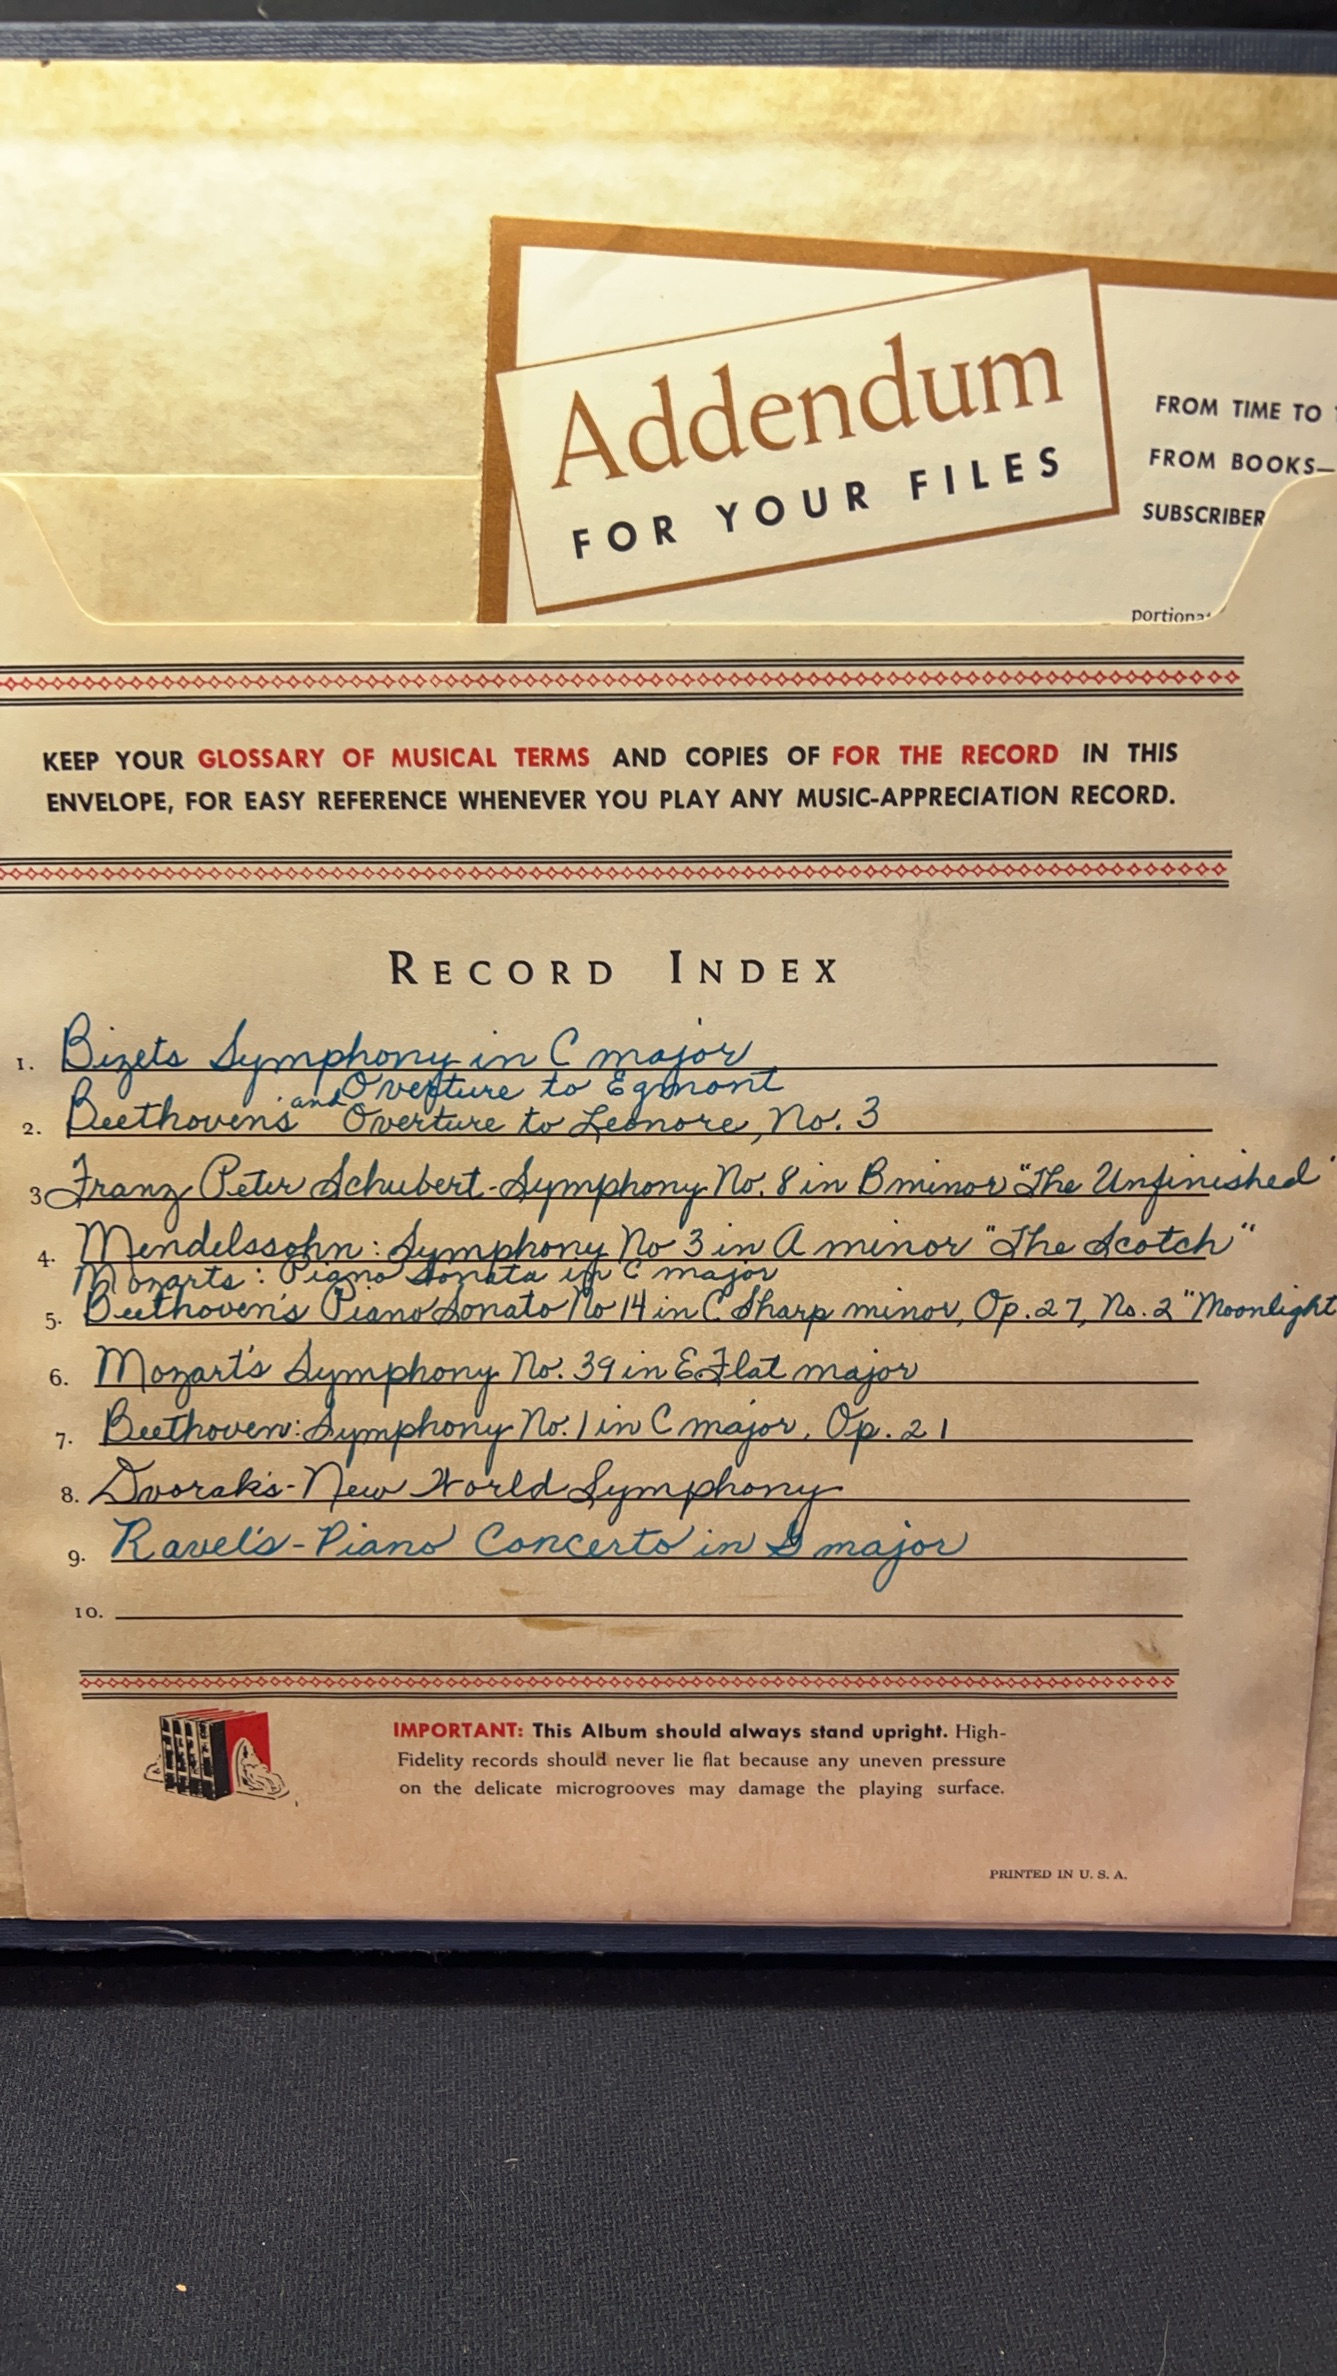 Addendum
FOR YOUR FILES
FROM TIME TO
FROM BOOKS—
SUBSCRIBER
KEEP YOUR GLOSSARY OF MUSICAL TERMS AND COPIES OF FOR THE RECORD IN THIS
ENVELOPE, FOR EASY REFERENCE WHENEVER YOU PLAY ANY MUSIC-APPRECIATION RECORD.
RECORD INDEX
1. Bizets Symphony in C major
and Overture to Egmont
2. Beethoven's Overture to Leonore, No. 3
3. Franz Peter Schubert-Symphony No. 8 in B minor "The Unfinished"
4. Mendelssohn: Symphony No 3 in A minor "The Scotch"
Mozarts: Piano Sonata in C major
5. Beethoven's Piano Sonato No 14 in C Sharp minor, Op. 27, No. 2 "Moonlight
6. Mozart's Symphony No. 39 in E Flat major
7. Beethoven: Symphony No. 1 in C major, Op. 21
8. Dvorak's-New World Symphony
9. Ravel's-Piano Concerto in G major
10.
IMPORTANT: This Album should always stand upright. High-
Fidelity records should never lie flat because any uneven pressure
on the delicate microgrooves may damage the playing surface.
PRINTED IN U. S. A.